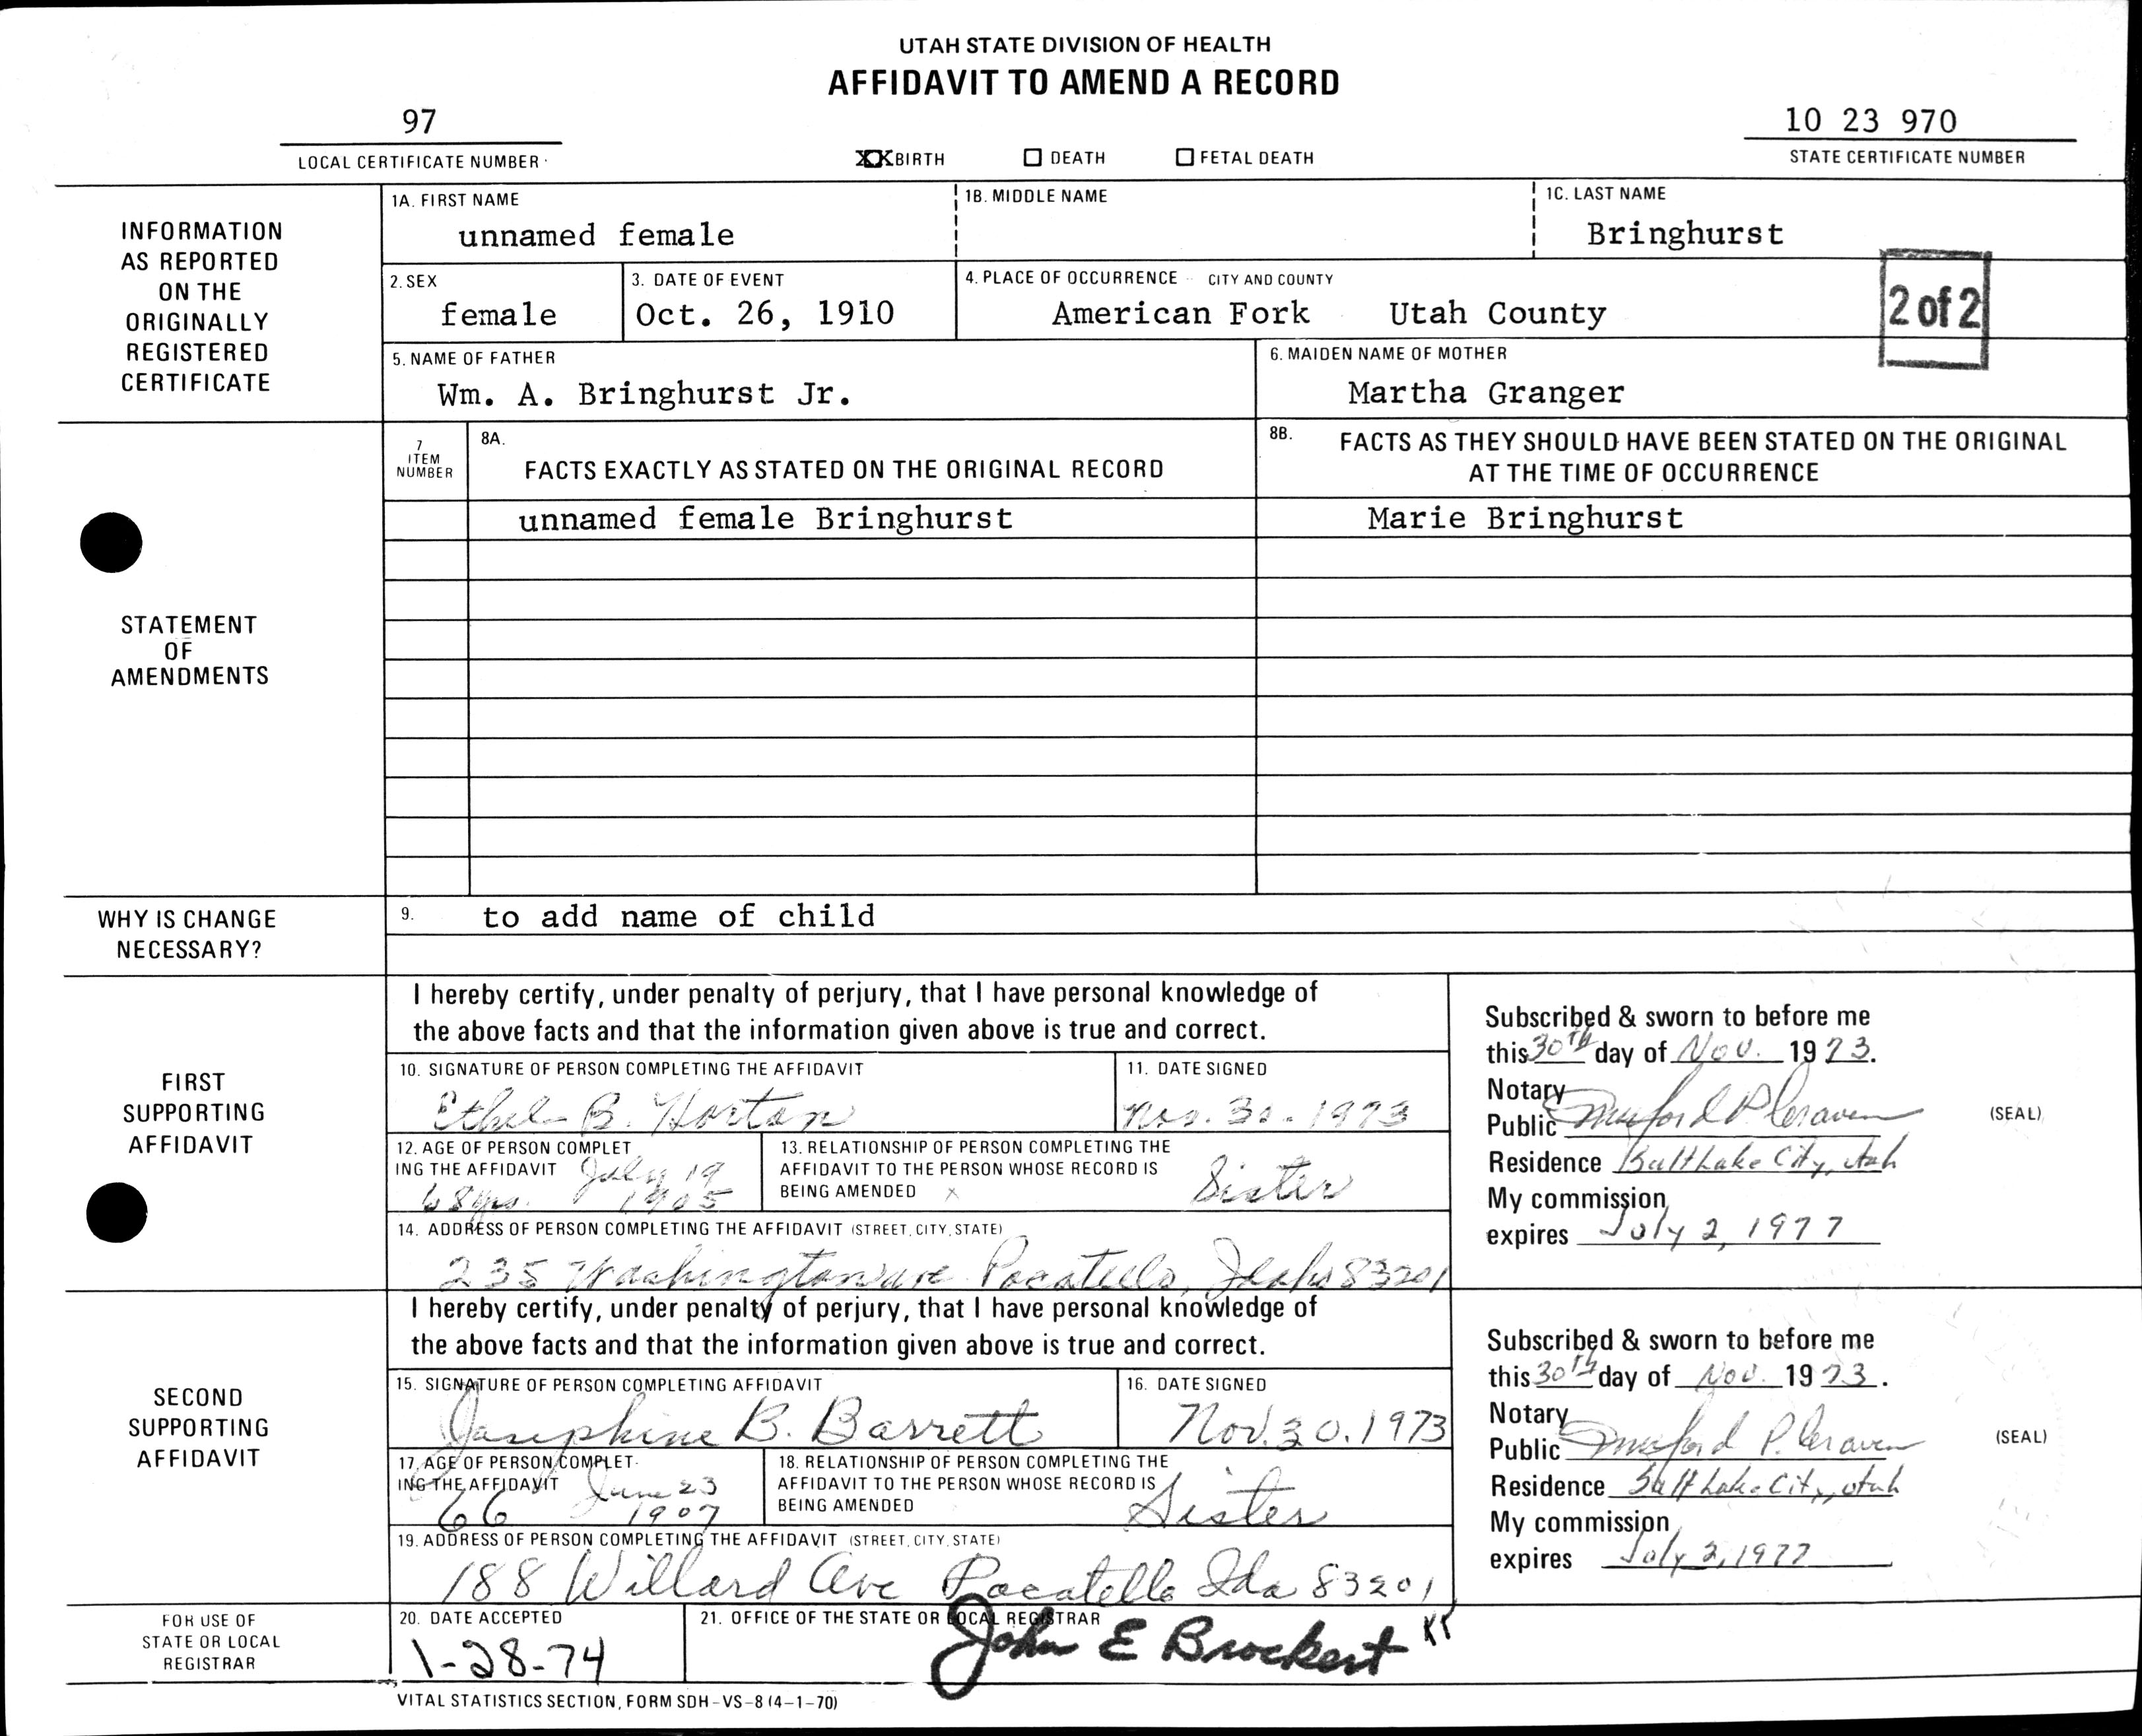 UTAH STATE DIVISION OF HEALTH
AFFIDAVIT TO AMEND A RECORD
97
10 23 970
LOCAL CERTIFICATE NUMBER
XX BIRTH ☐ DEATH ☐ FETAL DEATH
STATE CERTIFICATE NUMBER
INFORMATION
AS REPORTED
ON THE
ORIGINALLY
REGISTERED
CERTIFICATE
1A. FIRST NAME
unnamed female
1B. MIDDLE NAME
1C. LAST NAME
Bringhurst
2. SEX
female
3. DATE OF EVENT
Oct. 26, 1910
4. PLACE OF OCCURRENCE - CITY AND COUNTY
American Fork Utah County
2 of 2
5. NAME OF FATHER
Wm. A. Bringhurst Jr.
6. MAIDEN NAME OF MOTHER
Martha Granger
STATEMENT
OF
AMENDMENTS
7
ITEM
NUMBER
8A.
FACTS EXACTLY AS STATED ON THE ORIGINAL RECORD
8B.
FACTS AS THEY SHOULD HAVE BEEN STATED ON THE ORIGINAL
AT THE TIME OF OCCURRENCE
unnamed female Bringhurst
Marie Bringhurst
WHY IS CHANGE
NECESSARY?
9. to add name of child
FIRST
SUPPORTING
AFFIDAVIT
I hereby certify, under penalty of perjury, that I have personal knowledge of
the above facts and that the information given above is true and correct.
10. SIGNATURE OF PERSON COMPLETING THE AFFIDAVIT
Ethel B. Horton
11. DATE SIGNED
Nov. 30. 1973
12. AGE OF PERSON COMPLET
ING THE AFFIDAVIT July 19
68 yrs. 1905
13. RELATIONSHIP OF PERSON COMPLETING THE
AFFIDAVIT TO THE PERSON WHOSE RECORD IS
BEING AMENDED x Sister
14. ADDRESS OF PERSON COMPLETING THE AFFIDAVIT (STREET, CITY, STATE)
235 Washington ave Pocatello, Idaho 83201
Subscribed & sworn to before me
this 30th day of Nov. 1973.
Notary
Public P. Craven
(SEAL)
Residence Salt Lake City, Utah
My commission
expires July 2, 1977
SECOND
SUPPORTING
AFFIDAVIT
I hereby certify, under penalty of perjury, that I have personal knowledge of
the above facts and that the information given above is true and correct.
15. SIGNATURE OF PERSON COMPLETING AFFIDAVIT
Josephine B. Barrett
16. DATE SIGNED
Nov. 30. 1973
17. AGE OF PERSON COMPLET-
ING THE AFFIDAVIT June 23
66 1907
18. RELATIONSHIP OF PERSON COMPLETING THE
AFFIDAVIT TO THE PERSON WHOSE RECORD IS
BEING AMENDED Sister
19. ADDRESS OF PERSON COMPLETING THE AFFIDAVIT (STREET, CITY, STATE)
188 Willard Ave Pocatello Ida 83201
Subscribed & sworn to before me
this 30th day of Nov. 1973.
Notary
Public P. Craven
(SEAL)
Residence Salt Lake City, Utah
My commission
expires July 2, 1977
FOR USE OF
STATE OR LOCAL
REGISTRAR
20. DATE ACCEPTED
1-28-74
21. OFFICE OF THE STATE OR LOCAL REGISTRAR
John E Brockert
VITAL STATISTICS SECTION, FORM SDH-VS-8 (4-1-70)